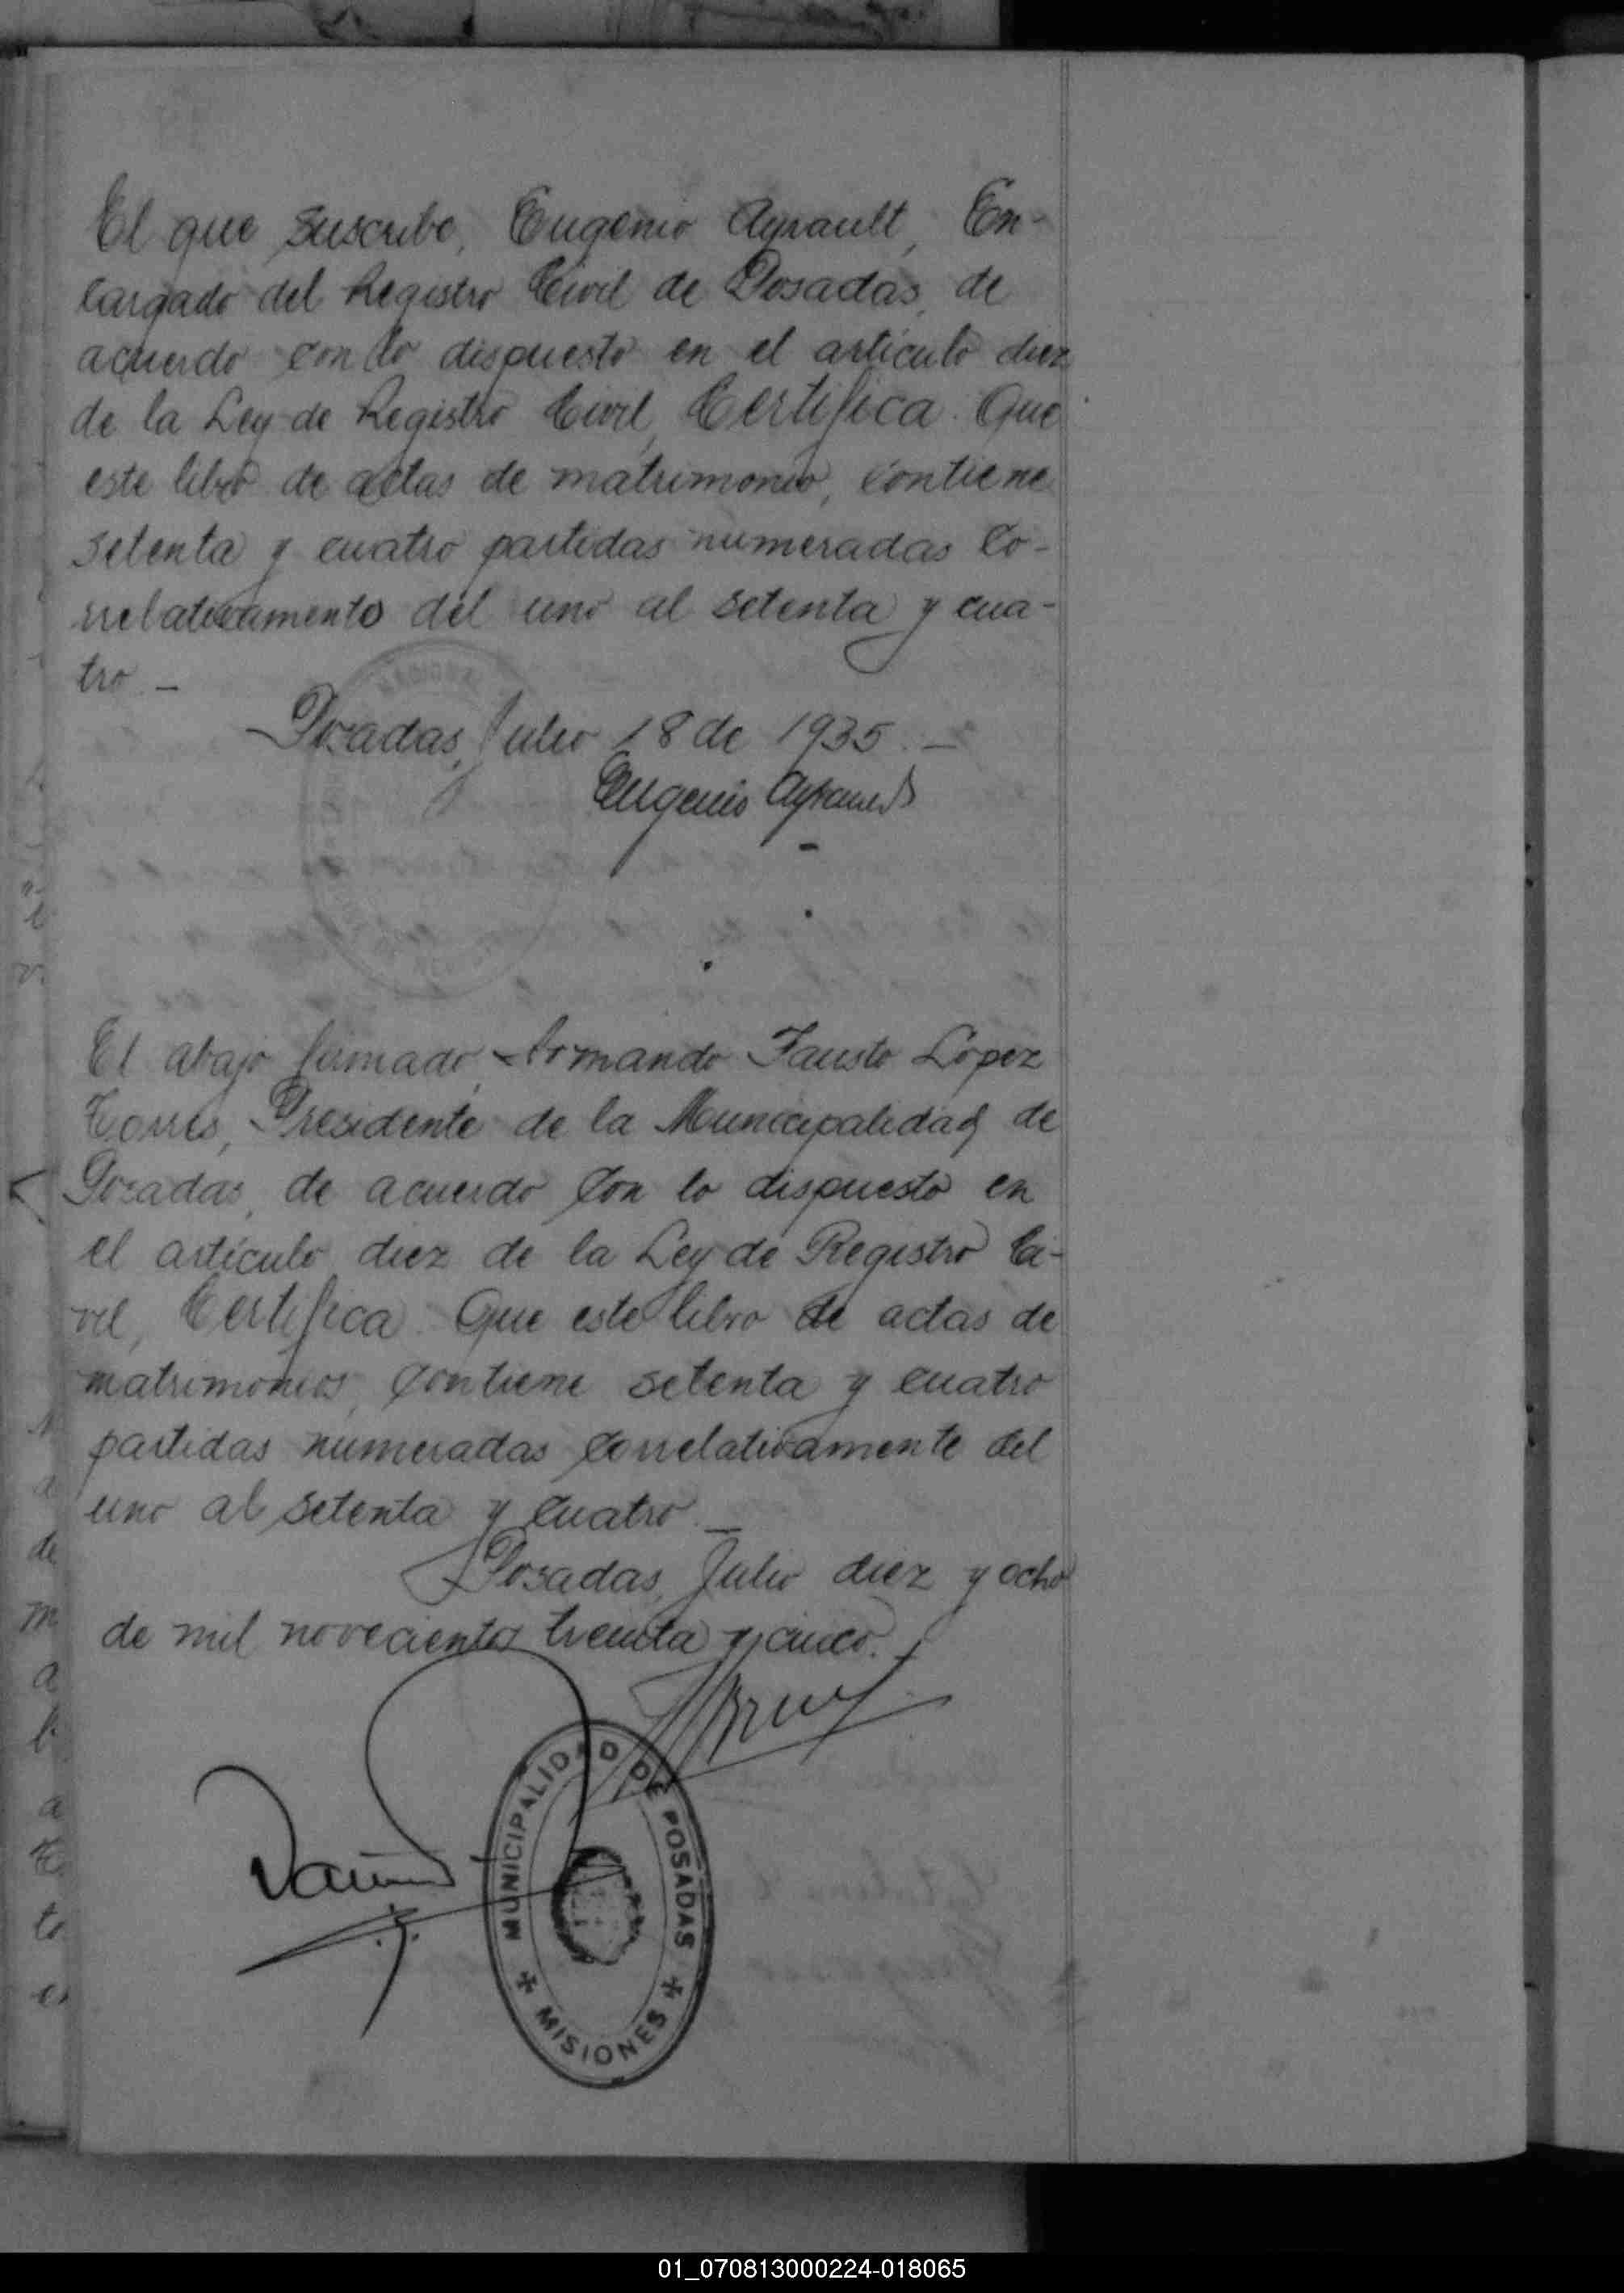 El que suscribe, Eugenio Ayrault, En-
cargado del Registro Civil de Posadas, de
acuerdo con lo dispuesto en el artículo diez
de la Ley de Registro Civil, Certifica. Que
este libro de actas de matrimonio, contiene
setenta y cuatro partidas numeradas co-
rrelativamente del uno al setenta y cua-
tro.—
Posadas, Julio 18 de 1935.—
Eugenio Ayrault
El abajo firmado, Armando Fausto López
Torres, Presidente de la Municipalidad de
Posadas, de acuerdo con lo dispuesto en
el artículo diez de la Ley de Registro Ci-
vil, Certifica. Que este libro de actas de
matrimonios, contiene setenta y cuatro
partidas numeradas correlativamente del
uno al setenta y cuatro.—
Posadas, Julio diez y ocho
de mil novecientos treinta y cinco.
MUNICIPALIDAD DE POSADAS
MISIONES
01_070813000224-018065